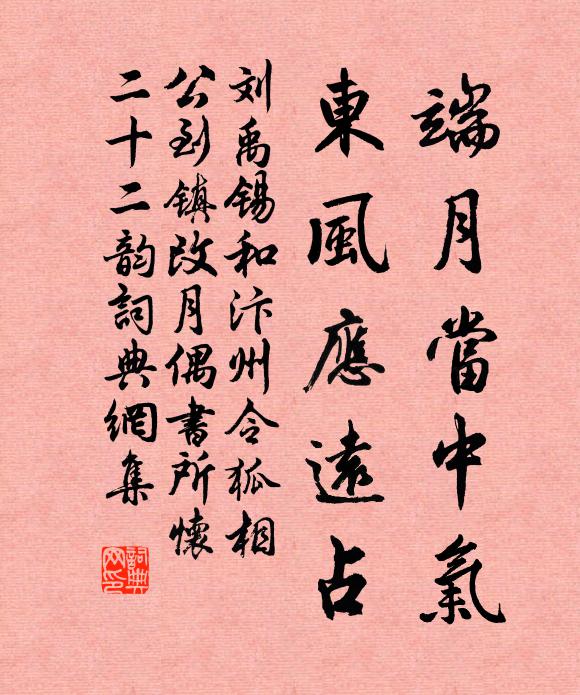 端月當中氣
東風應遠占
刘禹锡和汴州令狐相
公到镇改月偶書所懷
二十二韵詞典網集
詞典
网印